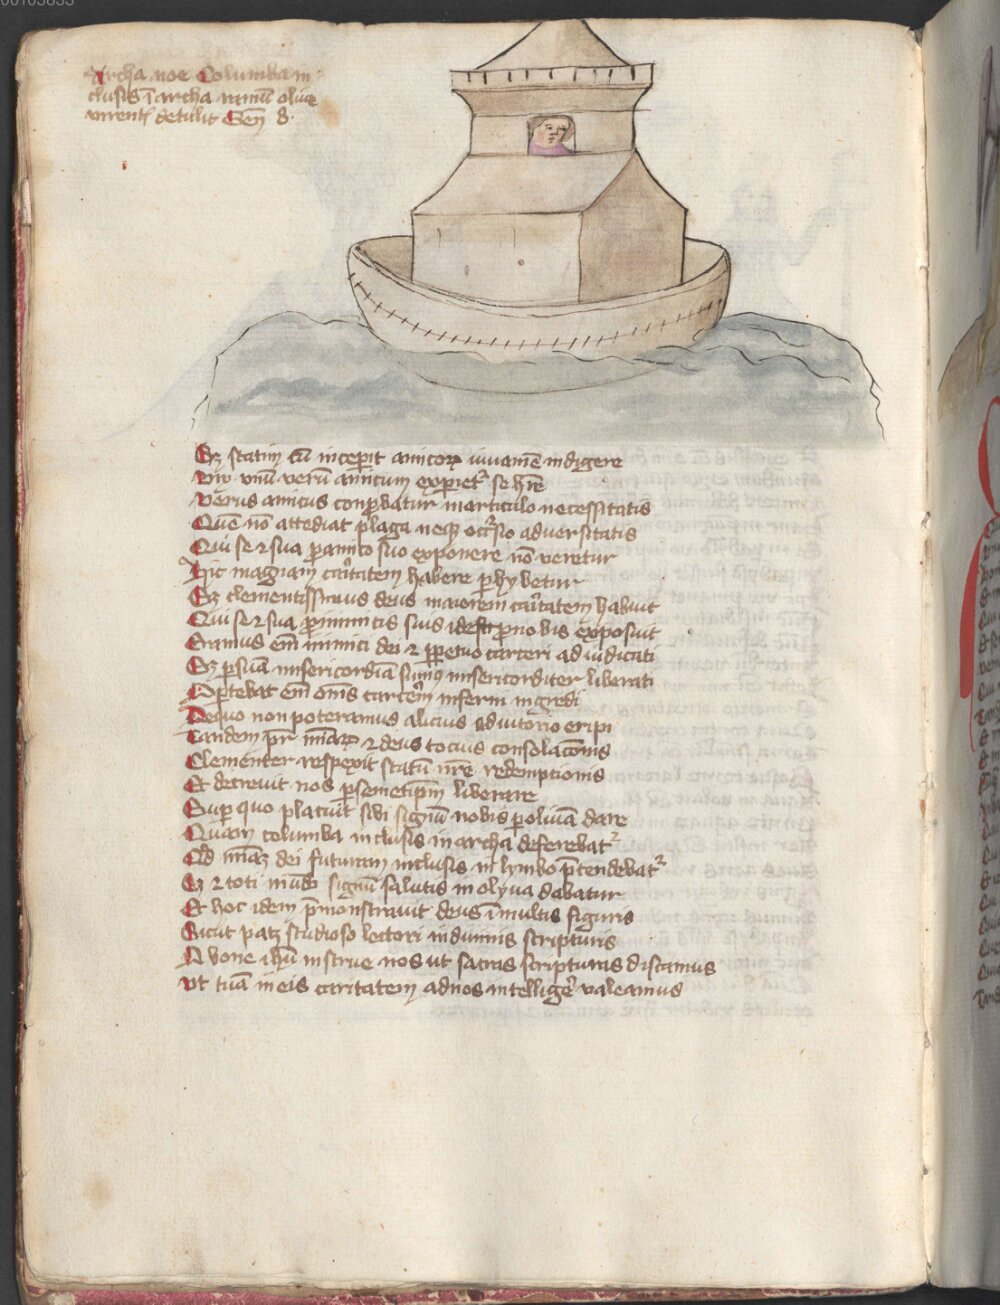 00103833
Archa noe Columba in
clusis ī archa ramū oliue
virent̄ detulit Geñ 8
Sʒ statim cū inceperit amicoꝝ iuuamē indigere
Vix vnū verū amicum experiet᷑ se hr̄e
Verus amicus conprobatur in articulo necessitatis
Quē nō attediat plaga neqꝫ occ̄sio aduersitatis
Qui se ⁊ sua pro amico suo exponere nō veretur
Hic magnam caritatem habere perhybetur
Sʒ clementissimus deus maiorem caritatem habuit
Qui se ⁊ sua pro inimicis suis idest pro nobis exposuit
Eramus em̄ inimici dei ⁊ ꝑpetuo carceri adiudicati
Sʒ ꝑ suā misericordiā sumꝰ misericorditer liberati
Oportebat em̄ om̄s carcerem inferni ingredi
De quo non poteramus alicius aduitorio eripi
Tandem pr̄ mīaꝝ ⁊ deus tocius consolacōnis
Clementer respexit statū nr̄e redemptionis
Et decreuit nos ꝑ semetip̄m liberare
Super quo placuit sibi signū nobis ꝑ oliuā dare
Quam columba inclusis in archa deferebat᷑
Qd̄ mīaʒ dei futuram inclusis in lymbo p̄tendebat᷑
Sʒ ⁊ toti mūdo signū salutis in olyua dabatur
Et hoc idem p̄monstrauit deus ī multis figuris
Sicut patʒ studioso lectori in diuinis scripturis
O bone ihū instrue nos ut sacras scripturas discamus
Vt tuā in eis caritatem ad nos intelligēr valeamus